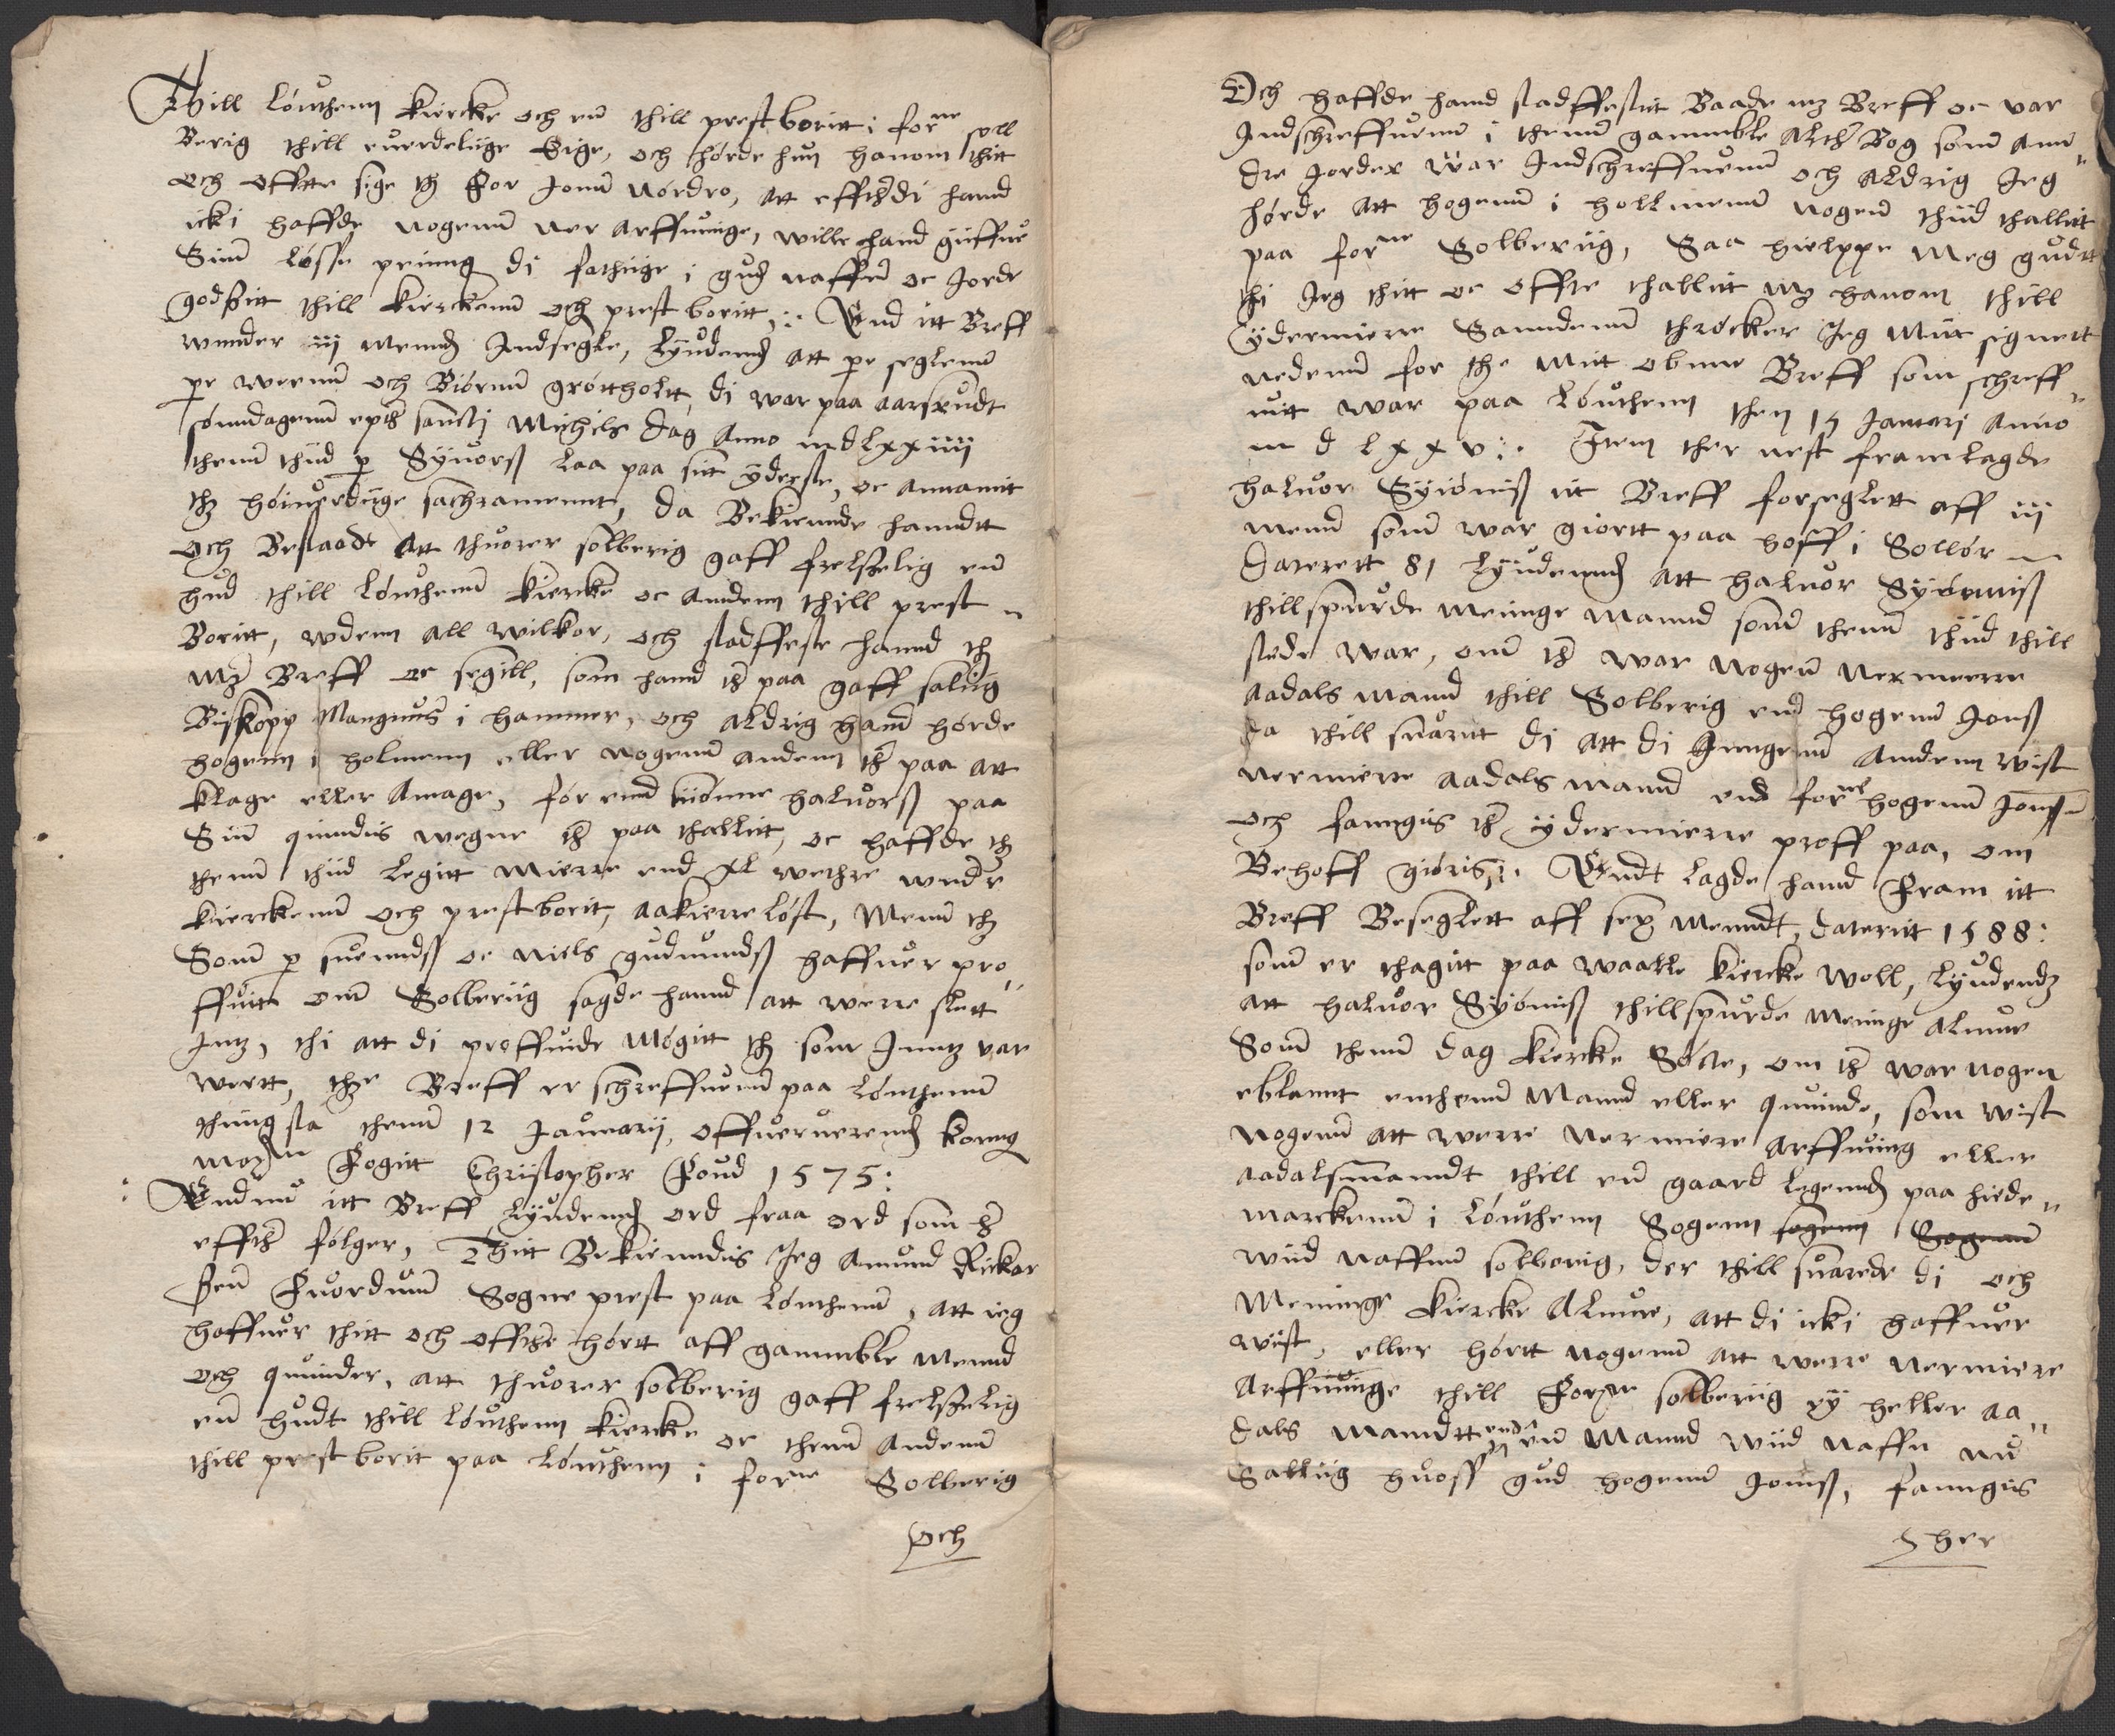 Thill Lóuthenn kiercke och enn thill prestboritt i forne soll
Berig thill euerdelige Eige, och hørde hun hanom thitt
och offtte sige thz for Jonn Nordro, att effttherdi hand
icki haffde nogenn ner arffuinge, wille hand giffue
Sinn Løsse pening di fathige i gudz naffnn oc Jorde
godßitt thill kierckenn och prestboritt :· End itt Breff
wnnder iij mendz Indsegle, Lyudendz att per seglenn
per weenn och Biörnn gröttholtt, di war paa aarsrudt
sønndagenn epther sancti Michils dag Anno mdlxxiiij
thenn thiid per Syuorß Laa paa sitt yderste, oc annamit
thz höiuerdige sachramennt, da Bekiennde hanndtt
och Bestaade att thuorer solberig gaff frelßelig enn
hud thill Lóuthenn kiercke oc anndenn thill prest
Boritt, wdenn all wilkor, och stadffeste hannd thz
mz Breff oc segill, som hand ther paa gaff salig
Biskopp Mangnus i hammer, och aldrig hand hørde
hogenn i holmenn eller nogenn andenn ther paa att
klage eller Anage, for end siiónne haluorß paa
Sinn quindis wegne ther paa thallitt, oc haffde thz
thenn thiid Legitt mierre end XL wethre wnder
kierckenn och prestborit, aakierreløst, Menn thz
Som per suenndß oc niels gudmundß haffuer pro
ffuitt om Solberiig sagde hannd att werre slett
Intz, thi att di proffuide Møgitt thz som Inntz var
wertt, thette Breff er schreffuenn paa Lóuthenn
thing sta thenn 12 Januarij, offueruerendz konng
maytt Fogitt Christopher Foud 1575:
Endnu itt Breff Lyudendz ord fraa ord som her
effther følger, Thitt Bekienndis Jeg Amund Rickar
ßenn Fuordum Sogneprest paa Lóuthenn, att ieg
haffuer thitt och offtte hørtt aff gammble mennd
och quinder, att thuorer solberig gaff frelßelig
enn hudt thill Lóuthenn kiercke oc thenn andenn
thill prestborit paa Lóuthenn i forne Solberig
och
Och haffde hannd stadffestiitt Baade mz Breff oc var
Indschreffuenn i thenn gammble Alther Bog som Ann
dre Jorder war Indschreffuenn och aldrig Jeg
hørde att hogenn i hollmenn nogenn thiid thallitt
paa forne Solberiig, Saa hielppe meg gudtt
thi Jeg thitt oc offte thallitt mz hanom thill
Ydermierre Sanndenn thröcker Jeg Mitt signett
nedenn for thette mitt obnne Breff som schreff
uitt war paa Lóuthenn then 15 Januarj Anno
m d l x x v :· Item ther nest framlagde
haluor Syiöniß itt Breff forseglett aff iij
menn som war giortt paa hoff i Sollör
Daterett 81 Lyudenndz att haluor Syöniß
thillspurde meninge mannd som thenn thiid thill
stede war, om ther war nogenn nermerre
aadals mannd thill Solberig end hogenn Jonß
da thill suarit di att di Inngenn anndenn wist
nermierre aadalsmannd end forne hogenn Jonß
och fanngis ther ydermierre proff paa, om
Behoff giöris :· Endt lagde hannd Fram itt
Breff Beseglett aff sex menndt, dateritt 1588:
som er thagitt paa waalle kiercke woll, Lyudendz
att haluor Syöniß thillspurde meninge almue
Som thenn dag kiercke Søcte, om ther war nogen
eblannt enthenn Mannd eller quinde, som wist
nogenn att werre nermiere arffuing eller
aadalsmanndt thill enn gaard liggenndz paa hede
marckenn i Lóuthenn Sogenn sogenn Sogenn
wiid naffnn solberig, der thill suarede di och
Meninge kiercke Almue, att di icki haffuer
wist, eller hørtt nogenn att werre nermiere
Arffuinge thill Forne solberiig ey heller aa
dals manndtt end enn Mannd wiid naffn nu
Salliig huoss gud hogenn Jonß, fanngis
Ther